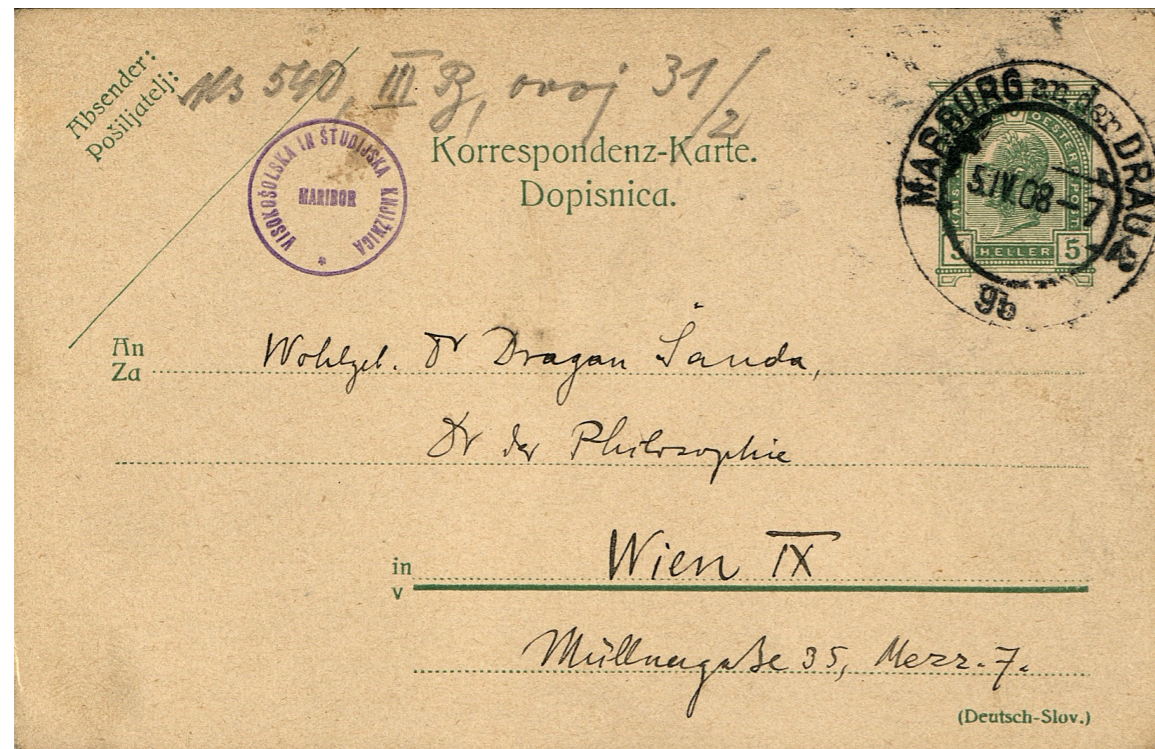 Absender:
Pošiljatelj:
Ms 540, III B, ovoj 31/2
VISOKOŠOLSKA IN ŠTUDIJSKA KNJIŽNICA
MARIBOR
*
Korrespondenz-Karte.
Dopisnica.
MARBURG an der DRAU 2
5.IV.08 - 7
9b
5 HELLER 5
An
Za
Wohlgeb. Dr Dragan Šanda,
Dr der Philosophie
in
v
Wien IX
Müllnergaße 35, Mezz. 7.
(Deutsch-Slov.)